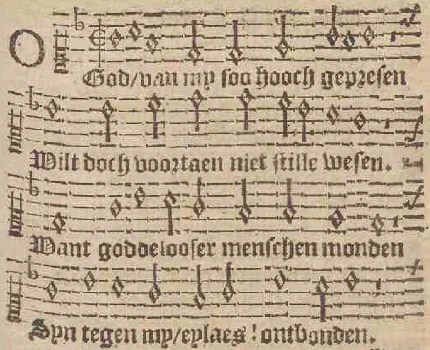 O God/van my soo hooch gepresen
Wilt doch voortaen niet stille wesen.
Want goddelooser menschen monden
Syn tegen my/eylaes! ontbonden.